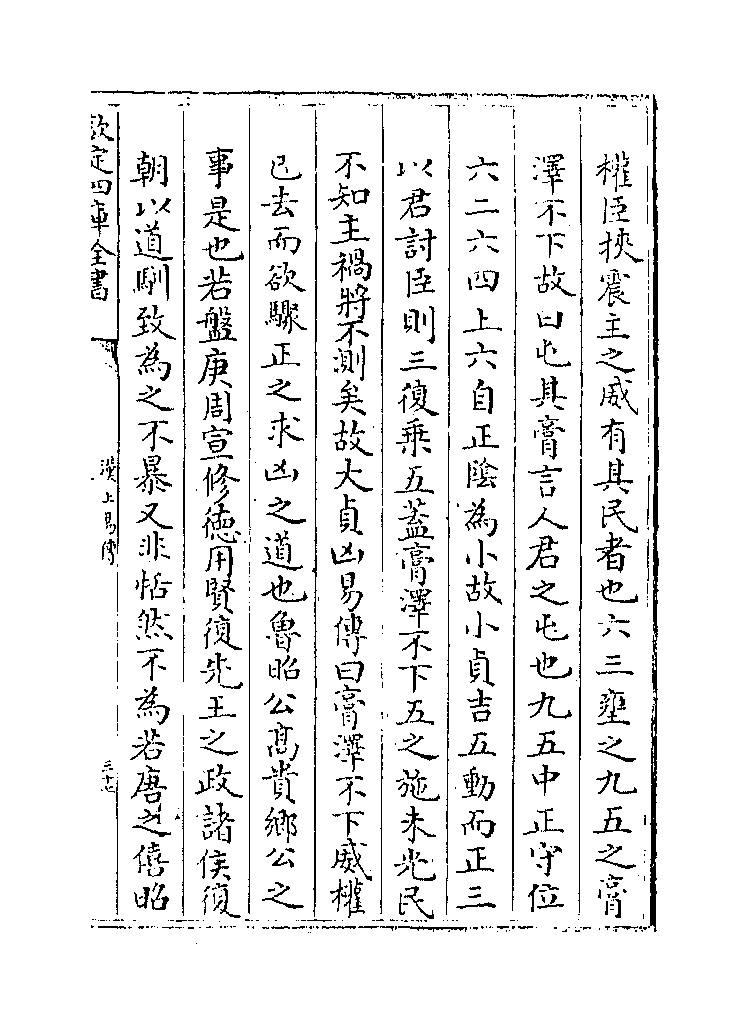 權臣挾震主之威有其民者也六三壅之九五之膏
澤不下故曰屯其膏言人君之屯也九五中正守位
六二六四上六自正陰為小故小貞吉五動而正三
以君討臣則三復乗五蓋膏澤不下五之施未光民
不知主禍將不測矣故大貞凶易傳曰膏澤不下威權
已去而欲驟正之求凶之道也魯昭公髙貴鄉公之
事是也若盤庚周宣修徳用賢復先王之政諸侯復
朝以道馴致為之不暴又非恬然不為若唐之僖昭
欽定四庫全書
漢上易傳
三十七